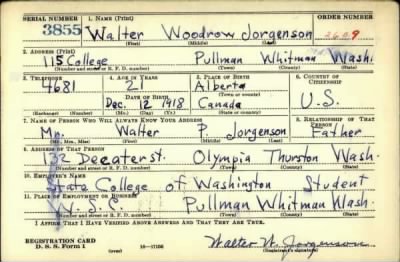 SERIAL NUMBER 1. NAME (Print) ORDER NUMBER
3855 Walter Woodrow Jorgenson 2609
(First) (Middle) (Last)
2. ADDRESS (Print)
115 College Pullman Whitman Wash.
(Number and street or R. F. D. number) (Town) (County) (State)
3. TELEPHONE 4. AGE IN YEARS 5. PLACE OF BIRTH 6. COUNTRY OF CITIZENSHIP
4681 21 Alberta
DATE OF BIRTH (Town or county)
Dec. 12 1918 Canada U.S.
(Exchange) (Number) (Mo.) (Day) (Yr.) (State or country)
7. NAME OF PERSON WHO WILL ALWAYS KNOW YOUR ADDRESS 8. RELATIONSHIP OF THAT PERSON
Mr. Walter P. Jorgenson Father
(Mr., Mrs., Miss) (First) (Middle) (Last)
9. ADDRESS OF THAT PERSON
132 Decater st. Olympia Thurston Wash.
(Number and street or R. F. D. number) (Town) (County) (State)
10. EMPLOYER'S NAME
State College of Washington Student
11. PLACE OF EMPLOYMENT OR BUSINESS
W.S.C. Pullman Whitman Wash.
(Number and street or R. F. D. number) (Town) (County) (State)
I AFFIRM THAT I HAVE VERIFIED ABOVE ANSWERS AND THAT THEY ARE TRUE.
REGISTRATION CARD
D. S. S. Form 1 (over) 16—17105 Walter W. Jorgenson
(Registrant's signature)